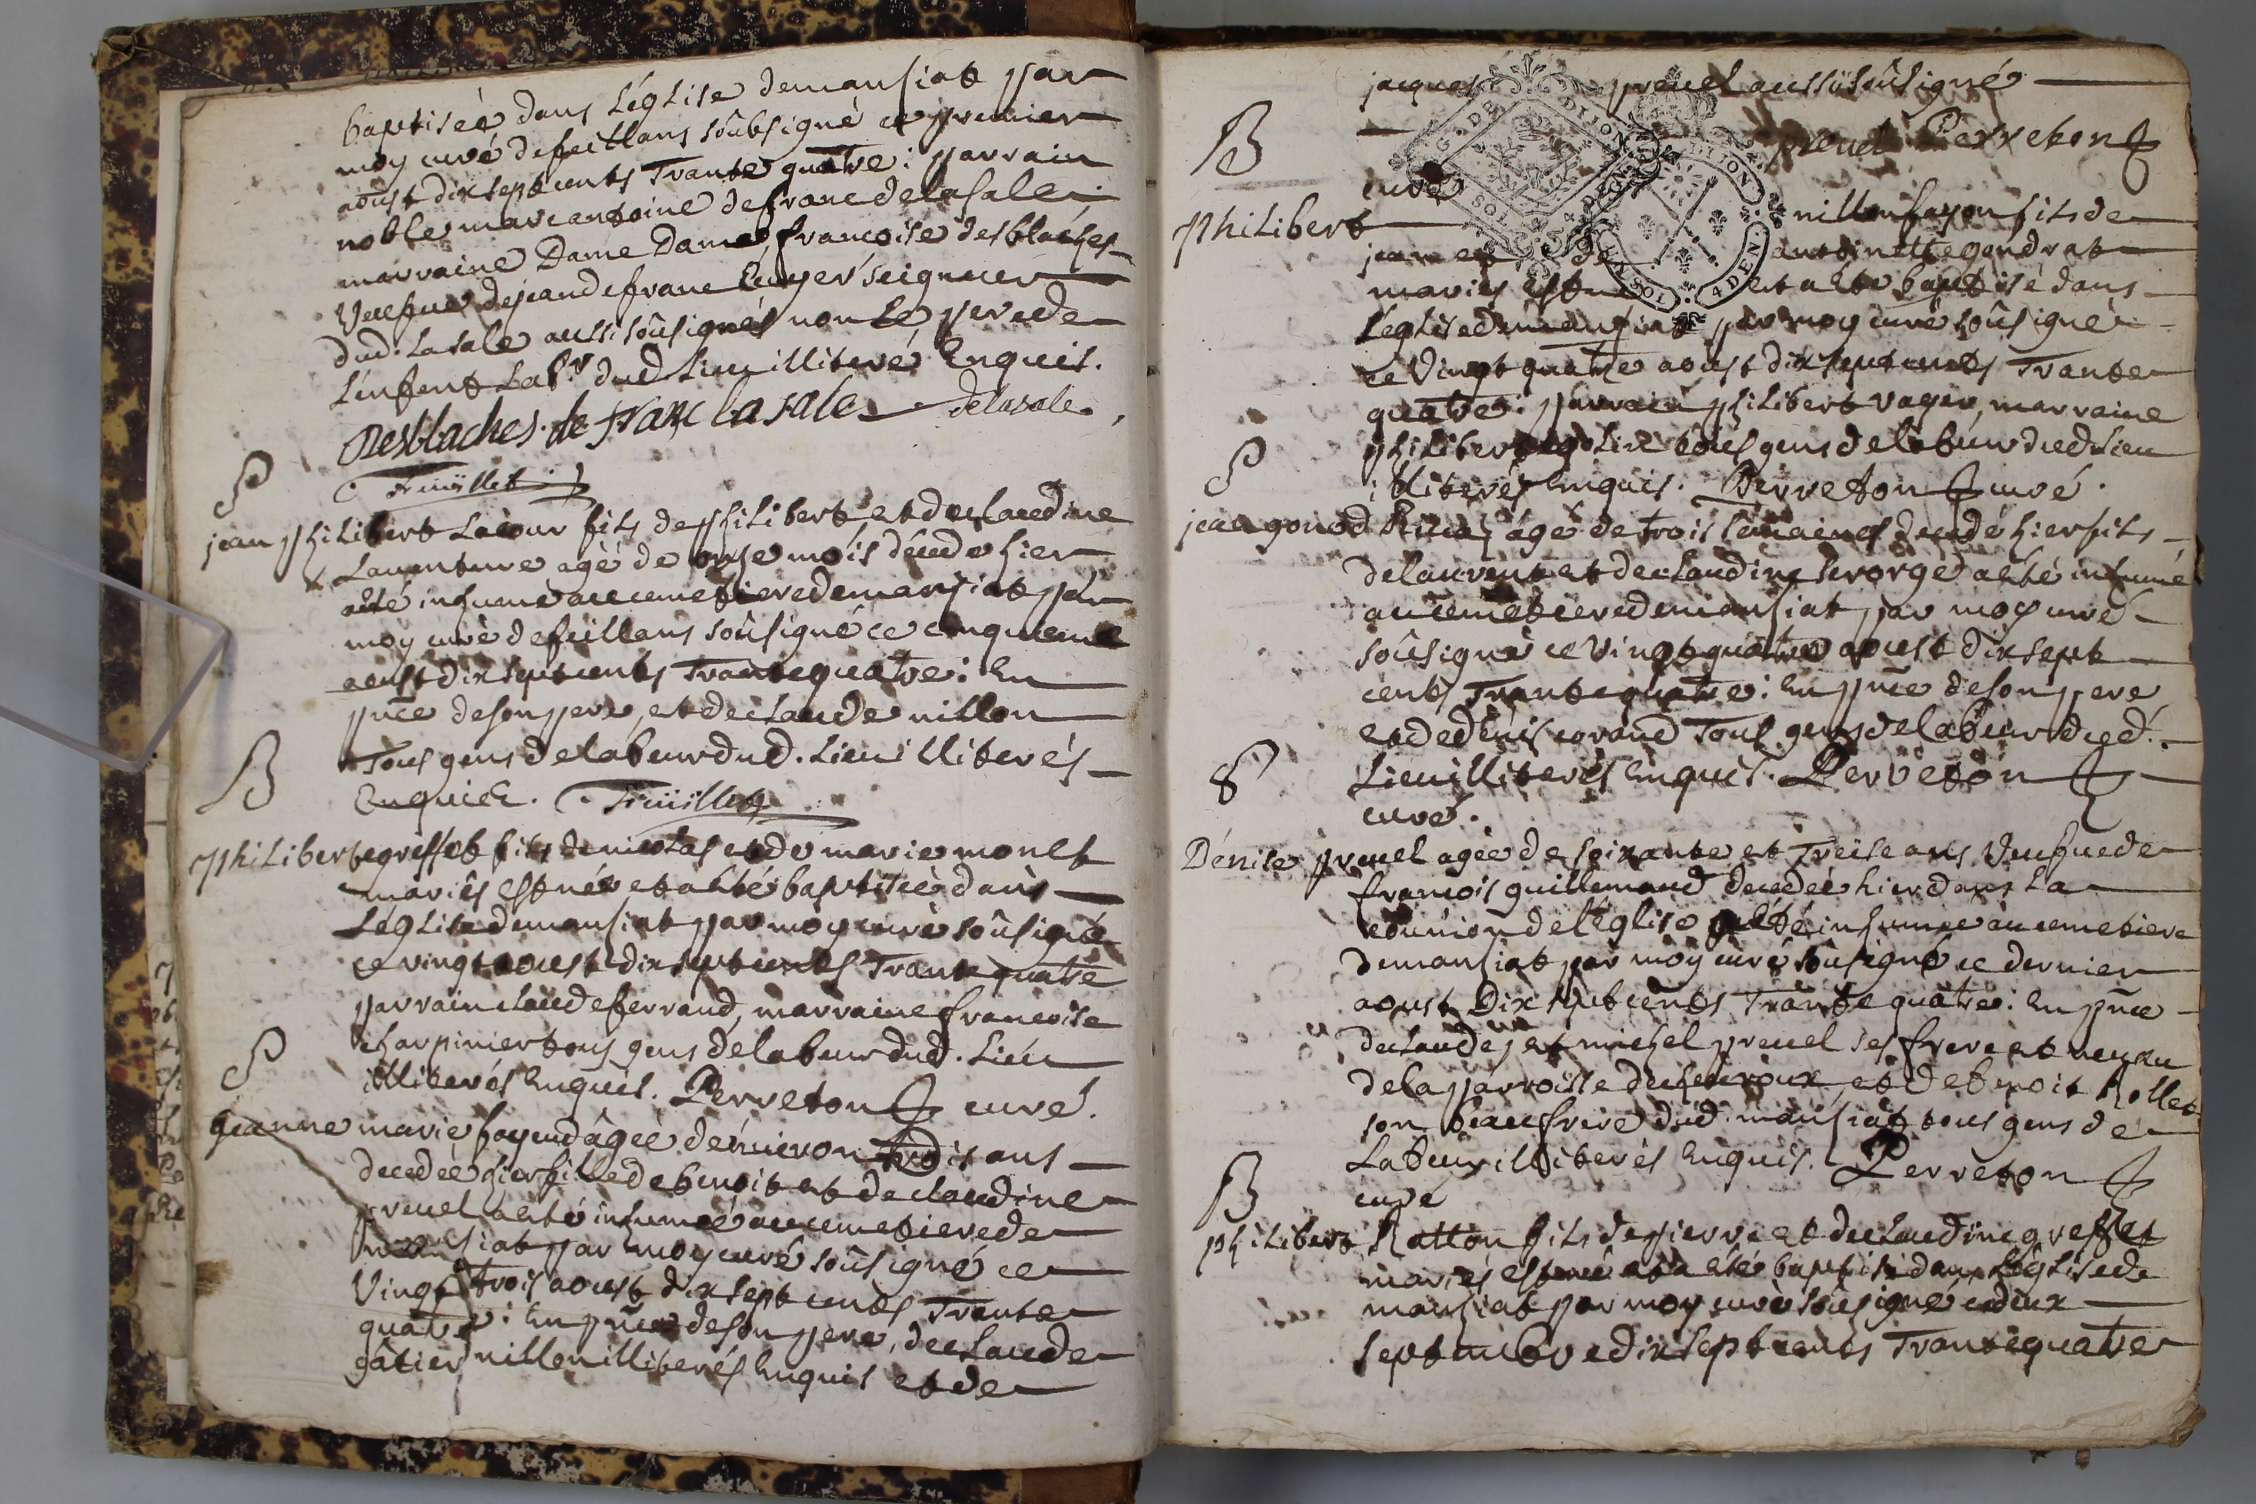 baptisée dans L'église demansiat par
moy curé defeillans soûbsigné ce premier
aoust dix sept cents Trante quatre: parrain
noble marc antoine defranc delasale
marraine Dame Dame françoise desblaches
Veufue dejean defranc Ecuyer seigneur
dud. lasale aussi soûsignés non Le pere de
L'enfent Lab.r dud Lieu illiteré Enquis.
Desblaches. de franc la sale delasale
feüillet
S
jean philibert Lacour fils de philibert et de claudine
Lauenture agé de onze mois décédé hier
a été inhumé au cemetiere demansiat par
moy curé defeillans soûsigné ce cinquieme
aoust dix sept cents Trante quatre: En
pñce deson pere, et de claude nillon
Tous gens de labeur dud. Lieu illiterés
Enquis. feüillet
B
philiberte greffet fille de nicolas et de marie monet
mariés est née et a été baptisée dans
L'église demansiat par moy curé soûsigné
ce vingt aoust dix sept cents Trante quatre
parrain claude ferrand, marraine françoise
charpinier tous gens de labeur dud. Lieu
illiterés Enquis. Perreton curé.
S
jeanne marie fayend âgée d'enuiron trois ans
decedée hier fille de benoit et de claudine
preuel a été inhumée au cemetiere de
mansiat par moy curé soûsigné ce
Vingt trois aoust dix sept cents Trante
quatre: En pñce deson pere, de claude
gâtier nillon illiterés Enquis et de
jacques preuel aussi soûsigné
preuel Perreton
curé
B
philibert nillon fayon fils de
jean et de antoinette gondrat
mariés est né et a été baptisé dans
L'église demansiat par moy curé soûsigné
ce Vingt quatre aoust dix sept cents Trante
quatre: parrain philibert vager, marraine
philiberte tous gens de labeur dud Lieu
illiterés Enquis. Perreton curé.
S
jean gonod âgé de trois semaines decedé hier fils
de laurent et de claudine a été inhumé
au cemetiere demansiat par moy curé
soûsigné ce Vingt quatre aoust dix sept
cents Trante quatre: En pñce deson pere
et de denis morand Tous gens de labeur dud.
Lieu illiterés Enquis. Perreton
curé.
S
Dénise preuel agée de soixante et Treise ans Veufue de
françois guillemaud decedée hier dans La
comunion de l'église a été inhumée au cemetiere
demansiat par moy curé soûsigné ce dernier
aoust Dix sept cents Trante quatre: En pñce
de claude, et michel preuel ses frere et neueu
de la parroisse de cheuroux, et de benoit Rollet
son beaufrere dud. mansiat tous gens de
Labeur illiterés Enquis. Perreton
curé
B
philibert Ratton fils de pierre et de claudine greffet
mariés est né et a été baptisé dans L'église de
mansiat par moy curé soûsigné ce deux
septembre dix sept cents Trante quatre
G. DE DIJON
SOL 4 DEN
G. DE DIJON
UN SOL 4 DEN